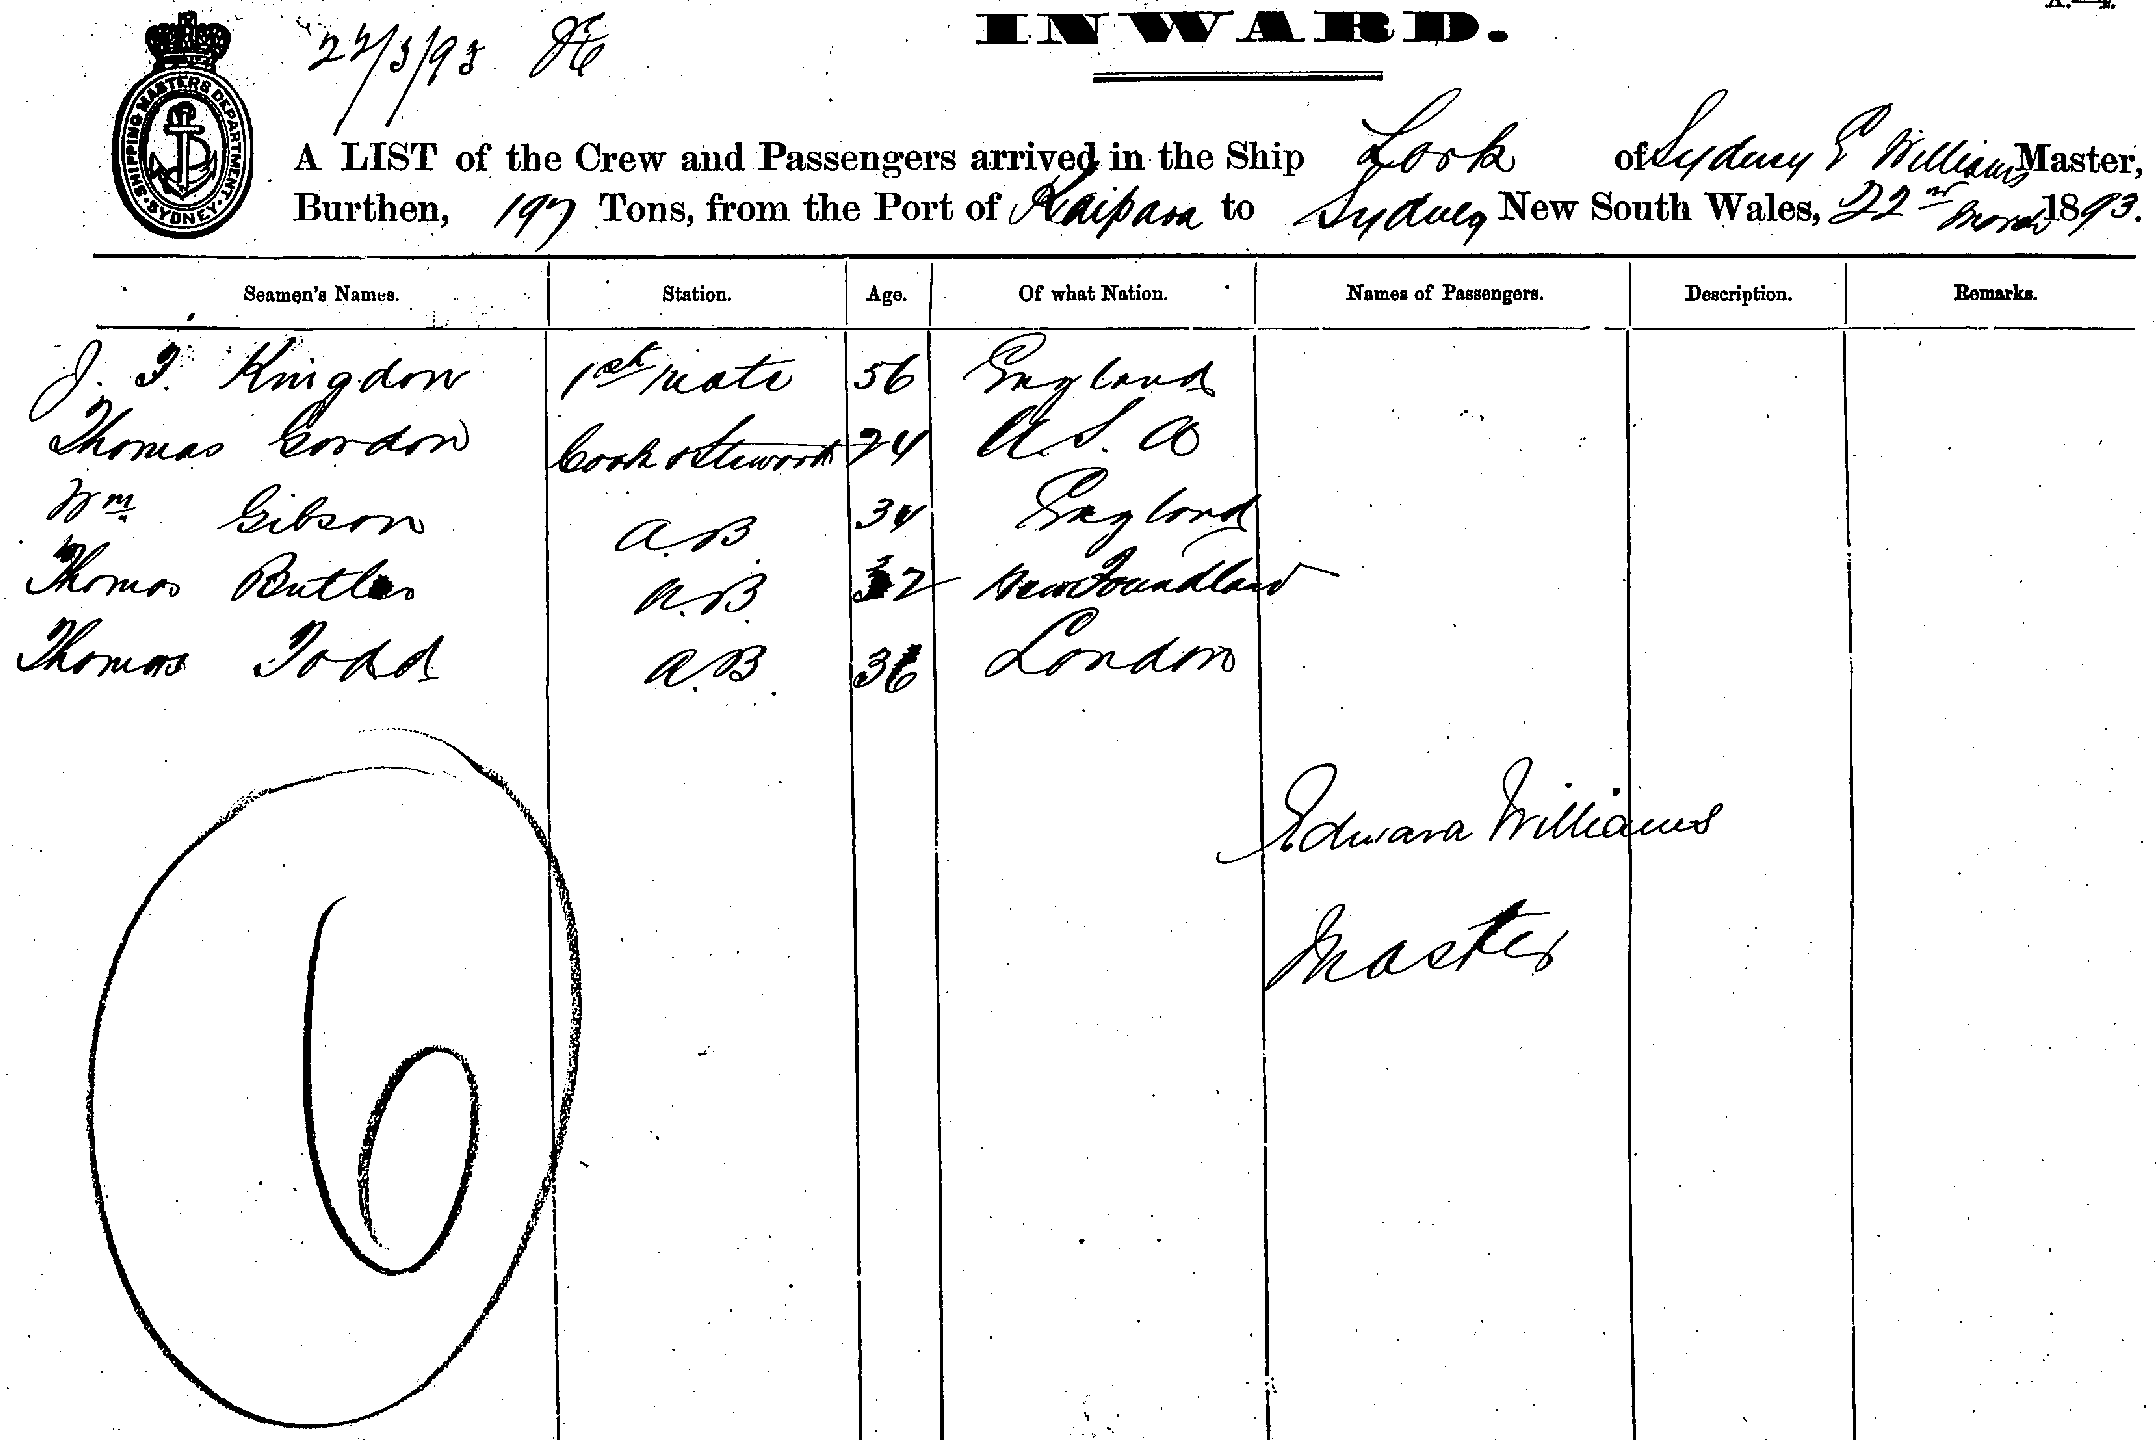 22/3/93
INWARD.
SHIPPING MASTERS DEPARTMENT SYDNEY
A LIST of the Crew and Passengers arrived in the Ship Look of Sydney E Williams Master,
Burthen, 197 Tons, from the Port of Kaipara to Sydney New South Wales, 22nd March 1893.
Seamen's Names. Station. Age. Of what Nation. Names of Passengers. Description. Remarks.
J. T. Kingdon 1st mate 56 England
Thomas Gordon Cook & Steward 24 U. S. A
Wm Gibson A.B 34 England
Thomas Butler A.B 32 Newfoundland
Thomas Todd A.B 36 London
Edward Williams
Master
6